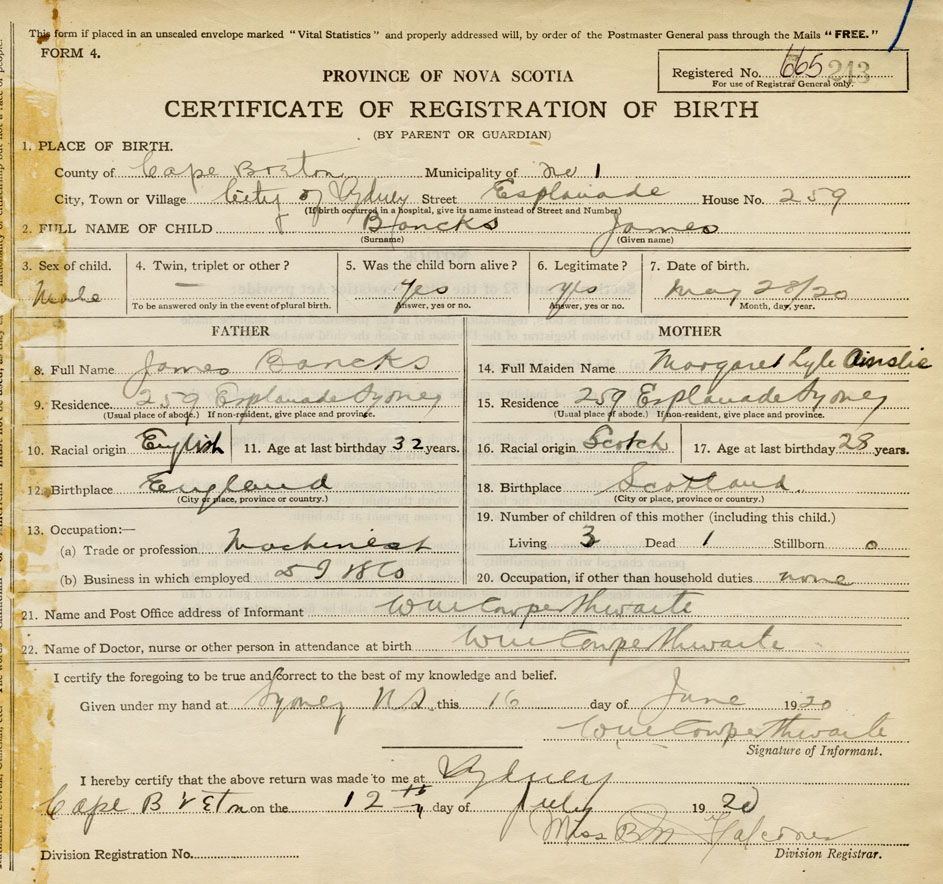 This form if placed in an unsealed envelope marked "Vital Statistics" and properly addressed will, by order of the Postmaster General pass through the Mails "FREE."
FORM 4.
Registered No. 665 213
For use of Registrar General only.
PROVINCE OF NOVA SCOTIA
CERTIFICATE OF REGISTRATION OF BIRTH
(BY PARENT OR GUARDIAN)
1. PLACE OF BIRTH.
County of Cape Breton Municipality of No 1
City, Town or Village City of Sydney Street Esplanade House No. 259
(If birth occurred in a hospital, give its name instead of Street and Number)
2. FULL NAME OF CHILD Bancks James
(Surname) (Given name)
3. Sex of child. 4. Twin, triplet or other? 5. Was the child born alive? 6. Legitimate? 7. Date of birth.
Male — Yes yes May 28/20
To be answered only in the event of plural birth. Answer, yes or no. Answer, yes or no. Month, day, year.
FATHER MOTHER
8. Full Name James Bancks 14. Full Maiden Name Margaret Lyle Ainslie
9. Residence 259 Esplanade Sydney 15. Residence 259 Esplanade Sydney
(Usual place of abode.) If non-resident, give place and province. (Usual place of abode.) If non-resident, give place and province.
10. Racial origin English 11. Age at last birthday 32 years. 16. Racial origin Scotch 17. Age at last birthday 28 years.
12. Birthplace England 18. Birthplace Scotland
(City or place, province or country.) (City or place, province or country.)
13. Occupation:— 19. Number of children of this mother (including this child.)
(a) Trade or profession Machinest Living 3 Dead 1 Stillborn 0
(b) Business in which employed 20. Occupation, if other than household duties none
21. Name and Post Office address of Informant Wm Cowperthwaite
22. Name of Doctor, nurse or other person in attendance at birth Wm Cowperthwaite
I certify the foregoing to be true and correct to the best of my knowledge and belief.
Given under my hand at Sydney N.S. this 16 day of June 1920
Wm Cowperthwaite
Signature of Informant.
I hereby certify that the above return was made to me at Sydney
Cape Breton on the 12th day of July 1920
Miss B M Falconer
Division Registration No. Division Registrar.